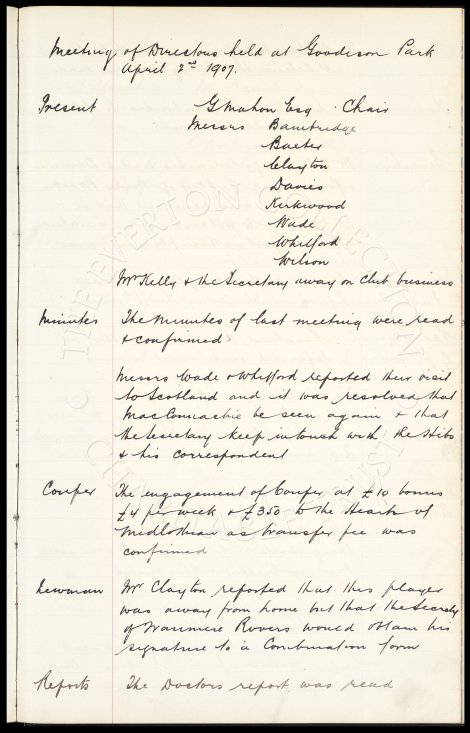 Meeting of Directors held at Goodison Park
April 2nd 1907.
Present G Mahon Esq Chair
Messrs Bainbridge
Baxter
Clayton
Davies
Kirkwood
Wade
Whitford
Wilson
Mr Kelly & the Secretary away on Club business
Minutes The Minutes of last meeting were read
& confirmed
Messrs Wade & Whitford reported their visit
to Scotland and it was resolved that
MacConnachie be seen again & that
the Secretary keep in touch with the Hibs
& his correspondent
Couper The engagement of Couper at £10 bonus
£4 per week & £350 to the Hearts of
Midlothian as transfer fee was
confirmed
Newman Mr Clayton reported that this player
was away from home but that the Secrety
of Tranmere Rovers would obtain his
signature to a Combination form
Reports The Doctors report was read
THE EVERTON COLLECTION
CHARITABLE TRUST